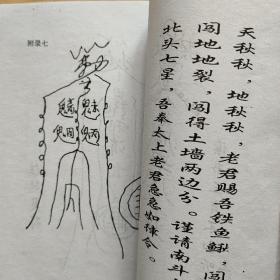 附录七
天秋秋，地秋秋，老君赐吾铁鱼鳅，闯
闯地地裂，闯得土墙两边分。谨请南斗
北头七星，吾奉太上老君急急如律令。